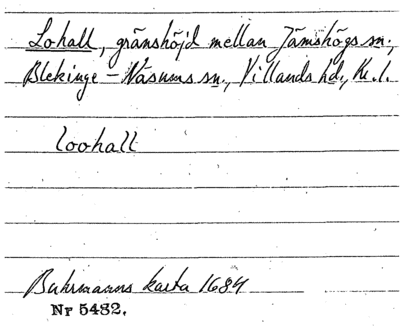 Lohall, gränshöjd mellan Jämshögs sn.,
Blekinge - Näsums sn., Villands hd., Kr. l.
Loohall
Buhrmanns karta 1684
Nr 5482.